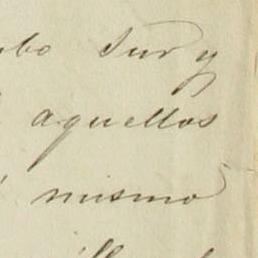 Sur y
aquellos
mismo